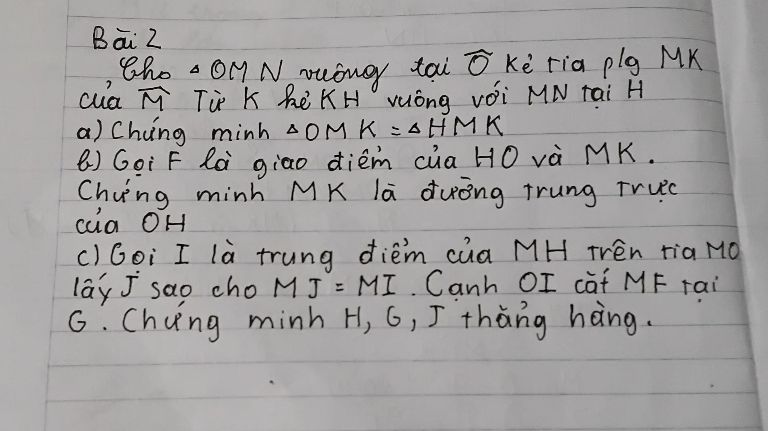 Bài 2
Cho △OMN vuông tại Ô kẻ tia p/g MK
của M̂ Từ K kẻ KH vuông với MN tại H
a) Chứng minh △OMK = △HMK
b) Gọi F là giao điểm của HO và MK.
Chứng minh MK là đường trung trực
của OH
c) Gọi I là trung điểm của MH trên tia MO
lấy J sao cho MJ = MI. Cạnh OI cắt MF tại
G. Chứng minh H, G, J thẳng hàng.